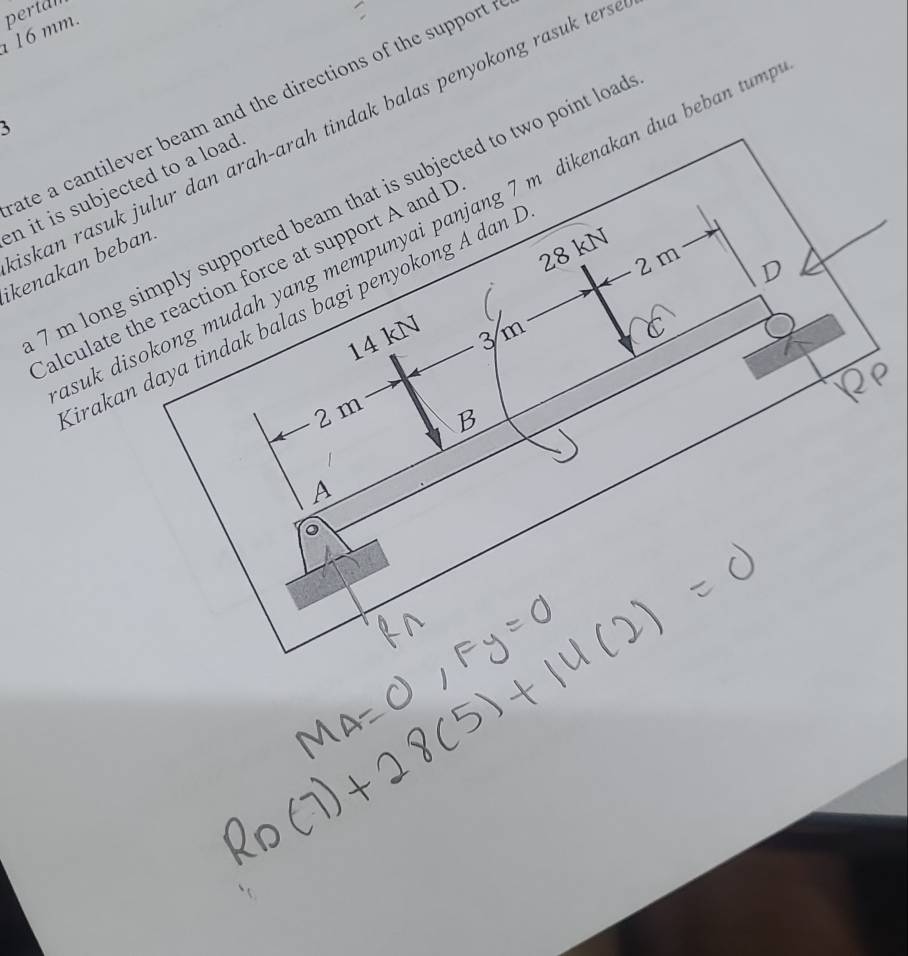 16 mm.
3
trate a cantilever beam and the directions of the support
en it is subjected to a load.
kiskan rasuk julur dan arah-arah tindak balas penyokong rasuk
ikenakan beban.
a 7 m long simply supported beam that is subjected to two point loads.
Calculate the reaction force at support A and D.
rasuk disokong mudah yang mempunyai panjang 7 m dikenakan dua beban tumpu.
Kirakan daya tindak balas bagi penyokong A dan D.
28 kN
2 m
D
14 kN
3 m
C
2 m
B
A
RD
RA
MA=0, Fy=0
RD(7)+28(5)+14(2)=0